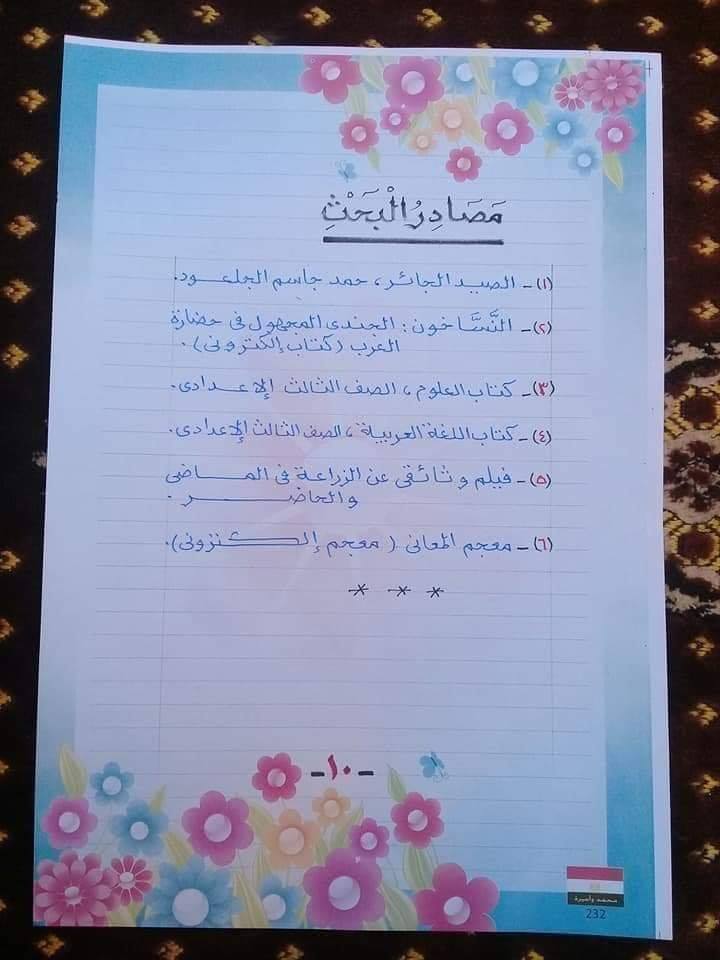 مَصَادِرُ الْبَحْثِ
(١) - الصيد الجائر، حمد جاسم الجلعـود.
(٢) - النَّسَّاخون: الجندى المجهول فى حضارة
العرب (كتاب إلكترونى).
(٣) - كتاب العلوم، الصف الثالث الإعـدادى.
(٤) - كتاب اللغة العربية، الصف الثالث الإعدادى.
(٥) - فيلم وثائقى عن الزراعة فى المـاضى
والحاضـر.
(٦) - معجم المعانى (معجم إلكـتزونى).
* * *
- ١٠ -
محمد وأميرة
232